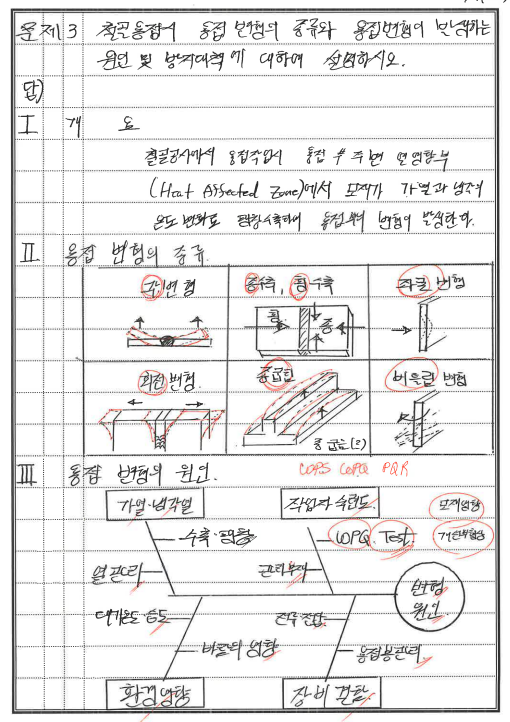 문제 3 철골용접시 용접 변형의 종류와 용접변형이 발생하는
원인 및 방지대책에 대하여 설명하시오.
답)
I 개 요
철골공사에서 용접작업시 용접 후 주변 열영향부
(Heat Affected Zone)에서 모재가 가열과 냉각시
온도 변화로 팽창수축하여 용접부의 변형이 발생한다.
II 용접 변형의 종류.
각변형
종수축, 횡수축
좌굴 변형
횡
종
회전 변형.
종굽힘
비틀림 변형
종굽음(R)
III 용접 변형의 원인.
WPS WPQ PQR
가열·냉각열
작업자 숙련도.
모재영향
수축·팽창
WPQ. Test.
개선부형상
열관리
관리부재
변형
원인.
대기온도·습도
전류·전압
바람의 영향
용접봉관리
환경영향
장비 결함